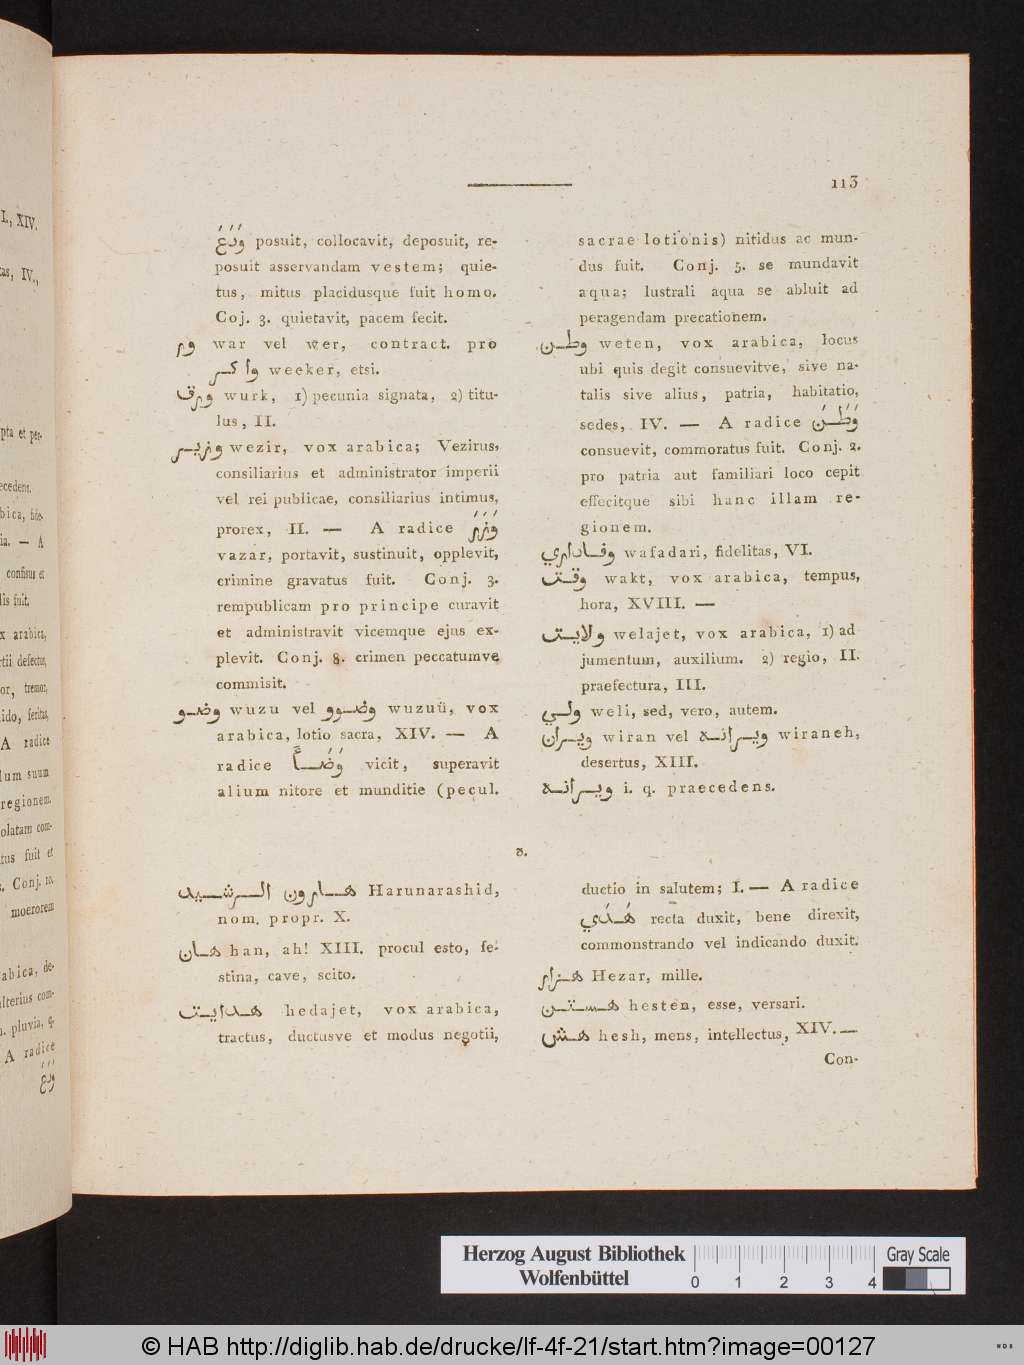 113
وَدَعَ posuit, collocavit, deposuit, re-
posuit asservandam vestem; quie-
tus, mitus placidusque fuit homo.
Coj. 3. quietavit, pacem fecit.
ور war vel wer, contract. pro
واكر weeker, etsi.
ورق wurk, 1) pecunia signata, 2) titu-
lus, II.
وزير wezir, vox arabica; Vezirus,
consiliarius et administrator imperii
vel rei publicae, consiliarius intimus,
prorex, II. — A radice وَزَرَ
vazar, portavit, sustinuit, opplevit,
crimine gravatus fuit. Conj. 3.
rempublicam pro principe curavit
et administravit vicemque ejus ex-
plevit. Conj. 8. crimen peccatumve
commisit.
وضو wuzu vel وضوو wuzuü, vox
arabica, lotio sacra, XIV. — A
radice وَضَأَ vicit, superavit
alium nitore et munditie (pecul.
sacrae lotionis) nitidus ac mun-
dus fuit. Conj. 5. se mundavit
aqua; lustrali aqua se abluit ad
peragendam precationem.
وطن weten, vox arabica, locus
ubi quis degit consuevitve, sive na-
talis sive alius, patria, habitatio,
sedes, IV. — A radice وَطَنَ
consuevit, commoratus fuit. Conj. 2.
pro patria aut familiari loco cepit
effecitque sibi hanc illam re-
gionem.
وفاداري wafadari, fidelitas, VI.
وقت wakt, vox arabica, tempus,
hora, XVIII. —
ولايت welajet, vox arabica, 1) ad
jumentum, auxilium. 2) regio, II.
praefectura, III.
ولي weli, sed, vero, autem.
ويران wiran vel ويرانه wiraneh,
desertus, XIII.
ويرانه i. q. praecedens.
ه.
هارون الرشيد Harunarashid,
nom. propr. X.
هان han, ah! XIII. procul esto, fe-
stina, cave, scito.
هدايت hedajet, vox arabica,
tractus, ductusve et modus negotii,
ductio in salutem; I. — A radice
هَدَي recta duxit, bene direxit,
commonstrando vel indicando duxit.
هزار Hezar, mille.
هستن hesten, esse, versari.
هش hesh, mens, intellectus, XIV. —
Con-
I., XIV.
tas, IV.,
pta et per-
ecedens.
bica, fide-
ia. — A
confisus et
lis fuit.
x arabica,
rtii defectus,
or, tremor,
ido, feritas,
A radice
lum suum
regionem.
olatam com-
tus fuit et
. Conj. 10.
moerorem
abica, de-
lterius com-
. pluvia, &
A radice
وَدَعَ
Herzog August Bibliothek
Wolfenbüttel
0 1 2 3 4
Gray Scale
© HAB http://diglib.hab.de/drucke/lf-4f-21/start.htm?image=00127